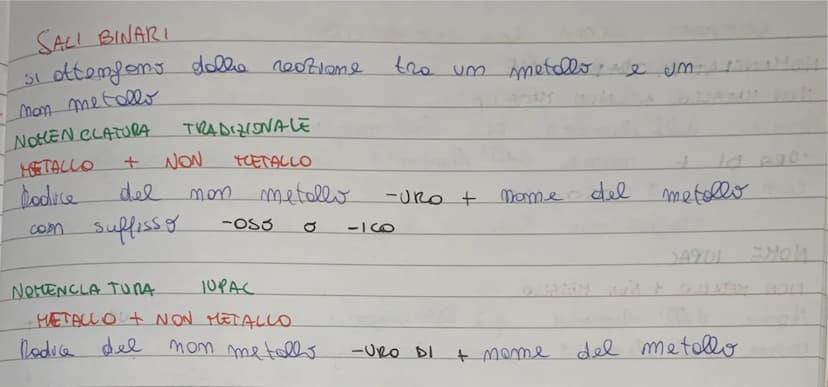 SALI BINARI
si ottengono dalla reazione tra un metallo e un
non metallo
NOMENCLATURA TRADIZIONALE
METALLO + NON METALLO
Radice del non metallo -URO + nome del metallo
con suffisso -OSO o -ICO
NOMENCLATURA IUPAC
METALLO + NON METALLO
Radice del non metallo -URO DI + nome del metallo